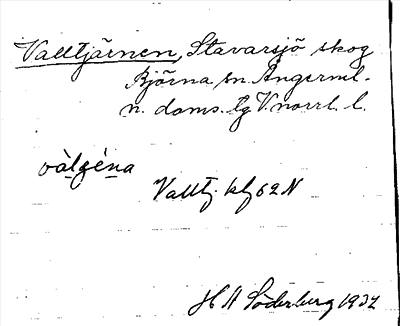 Valltjärnen, Stavarsjö skog
Björna sn. Ångerml.
n. doms. lg V.norrl. l.
vàlʒéna
Valltj. kbl 62 N
H A Söderberg 1932